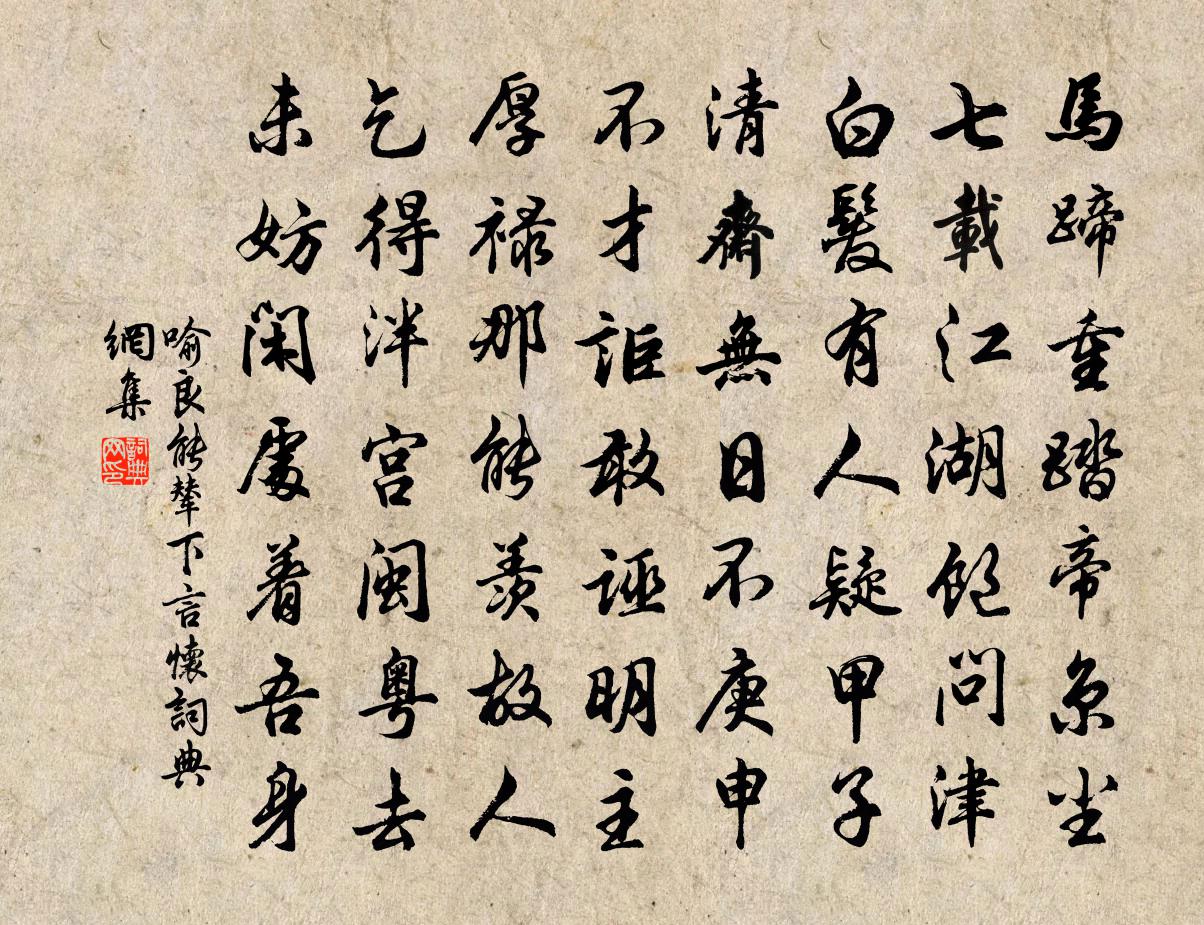 馬蹄重踏帝京尘
七載江湖飽问津
白髮有人疑甲子
清齋無日不庚申
不才詎敢誣明主
厚禄那能羨故人
乞得泮宫闽粤去
未妨闲處着吾身
喻良能輦下言懷詞典
網集
詞典网印